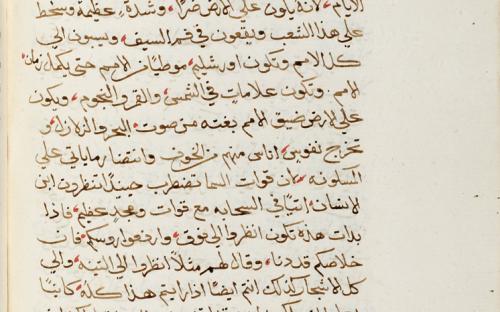 الايام، لانه يكون علي الارض ضرًا، وشدة عظيمة وسخط
علي هذا الشعب ويقعون في فم السيف، ويسبون الي
كل الامم وتكون اورشليم، موطيًا من الامم حتي يكمل زمان
الامم. وتكون علامات في الشمس، والقمر والنجوم، ويكون
علي الارض ضيق الامم بغته من صوت البحر والزلازل، و
تخرج نفوس اناس منهم من الخوف وانتظار ما ياتي علي
المسكونه، لان قوات السما تضطرب حينيدًا تنظرون ابن
الانسان، اتيًا في السحابه مع قوات ومجد عظيم، فاذا
بدات هذه تكون انظروا الي فوق، وارفعوا روسكم، فان
خلاصكم قد دنا، وقال لهم مثلًا انظروا الي التينه، والي
كل الاشجار كذلك انتم ايضًا اذا رايتم هذا كله كاينًا